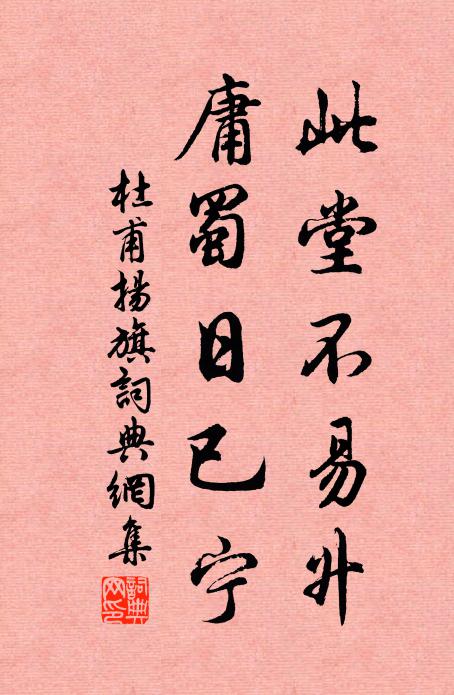 此堂不易升
庸蜀日已宁
杜甫揚旗詞典網集
詞典网印